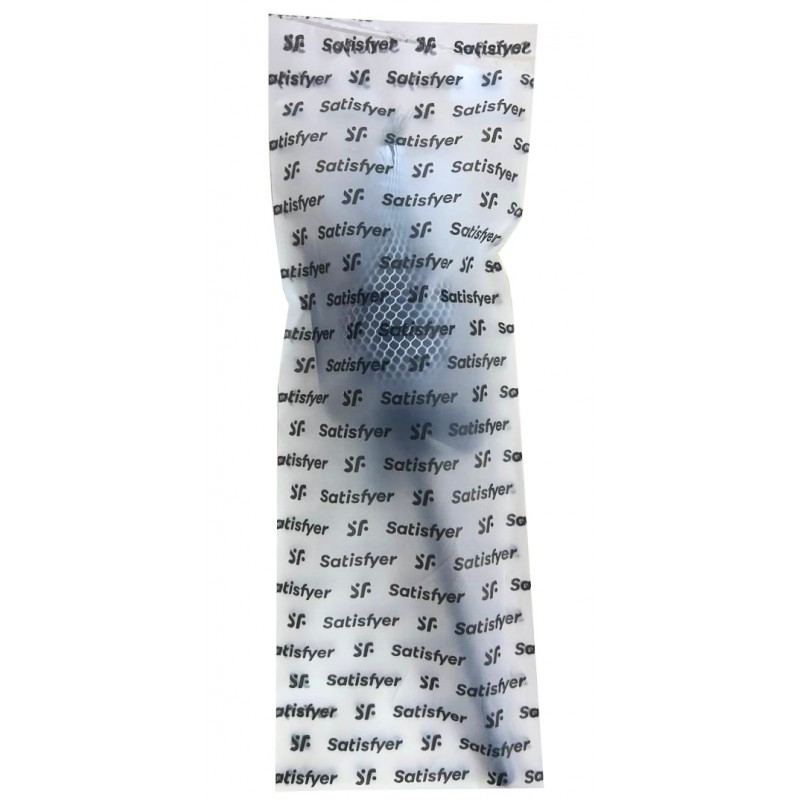 SF Satisfyer SF Satisfyer
atisfyer SF Satisfyer SF Sa
SF Satisfyer SF Satisfyer
atisfyer SF Satisfyer SF Sa
Satisfyer SF Satisfyer
atisfyer SF Satisfyer SF Sa
SF Satisfyer SF Satisfyer
atisfyer SF Satisfyer SF Sa
SF Satisfyer SF Satisfyer
atisfyer SF Satisfyer SF Sa
SF Satisfyer SF Satisfyer
atisfyer SF Satisfyer SF Sa
SF Satisfyer SF Satisfyer
atisfyer SF Satisfyer SF Sa
SF Satisfyer SF Satisfyer
atisfyer SF Satisfyer SF Sa
SF Satisfyer SF Satisfyer
atisfyer SF Satisfyer SF Sa
SF Satisfyer SF Satisfyer
atisfyer SF Satisfyer SF Sa
SF Satisfyer SF Satisfyer
atisfyer SF Satisfyer SF Sa
SF Satisfyer SF Satisfyer
atisfyer SF Satisfyer SF Sa